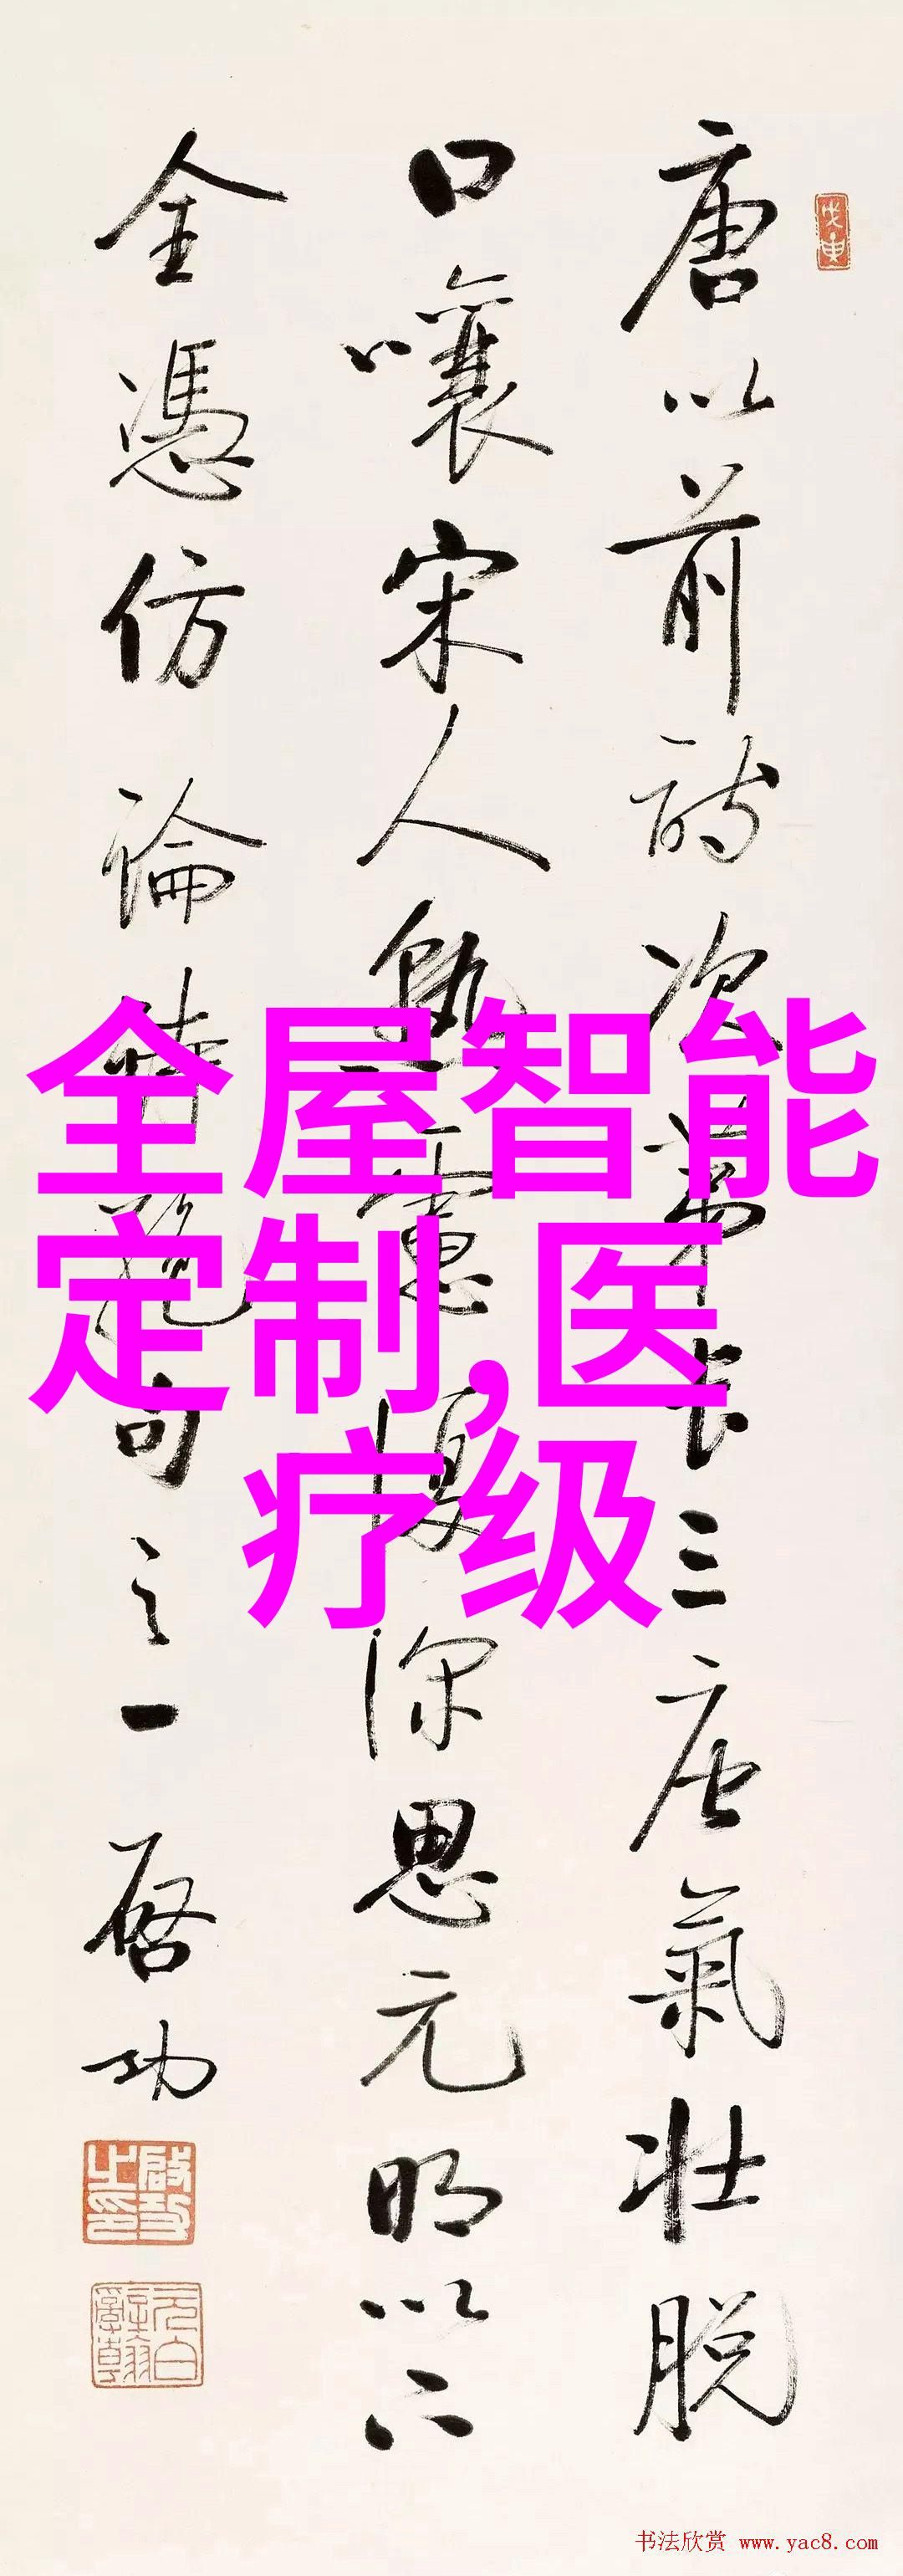 唐以前詩次第長三唐氣壯脫
口嚷宋人熟慮復深思元明以下
全憑仿 論詩絕句之一 启功
全屋智能
定制,医
疗级
书法欣赏 www.yac8.com